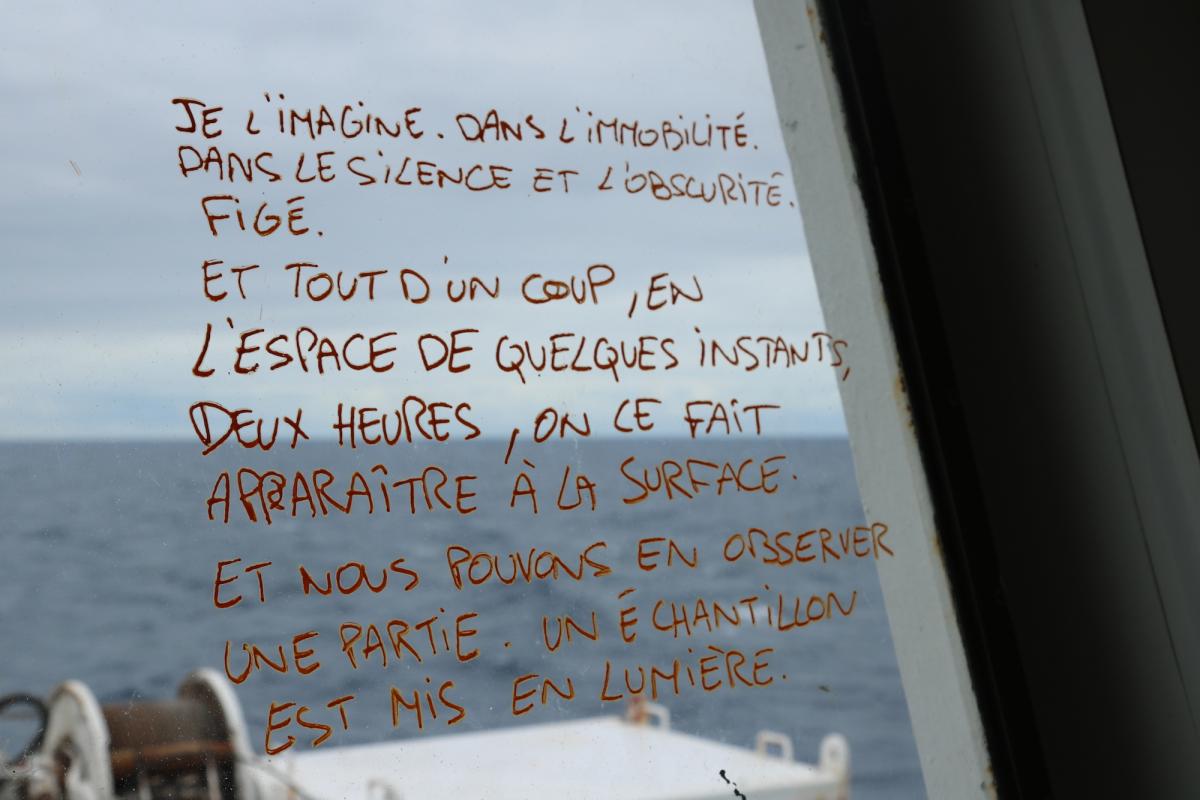 JE L'IMAGINE. DANS L'IMMOBILITÉ.
DANS LE SILENCE ET L'OBSCURITÉ.
FIGÉ.
ET TOUT D'UN COUP, EN
L'ESPACE DE QUELQUES INSTANTS,
DEUX HEURES, ON LE FAIT
APPARAÎTRE À LA SURFACE.
ET NOUS POUVONS EN OBSERVER
UNE PARTIE. UN ÉCHANTILLON
EST MIS EN LUMIÈRE.